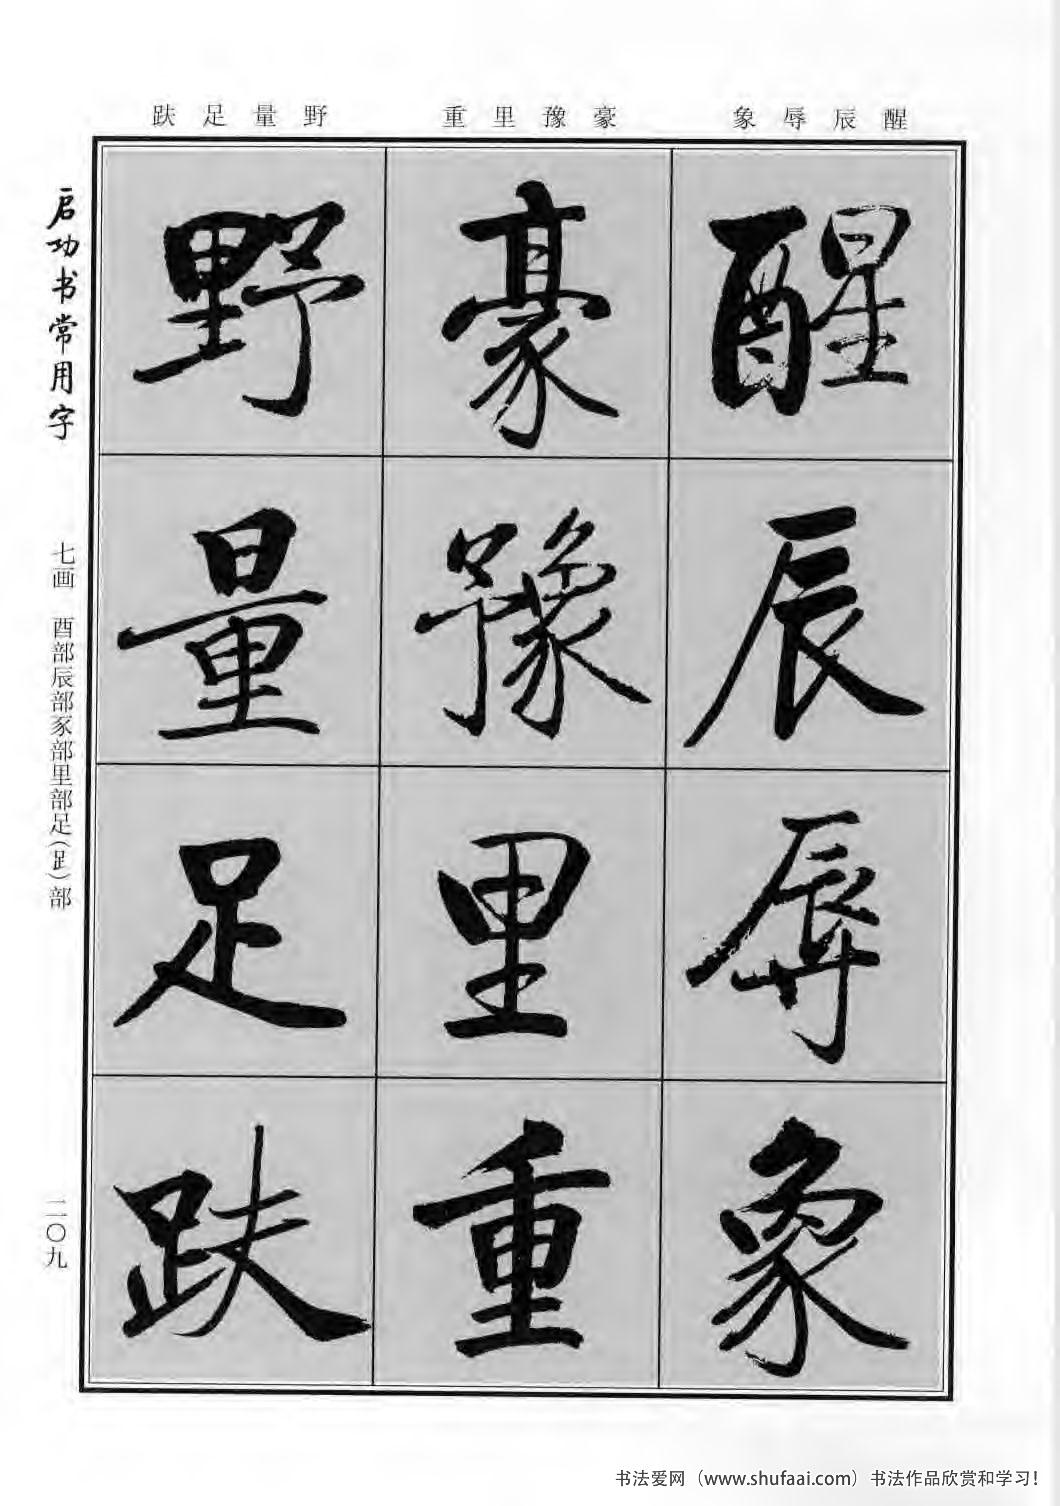 醒辰辱象 豪豫里重 野量足趺
醒辰辱象
豪豫里重
野量足趺
启功书常用字
七画 酉部辰部豕部里部足(⻊)部
二〇九
书法爱网（www.shufaai.com）书法作品欣赏和学习！